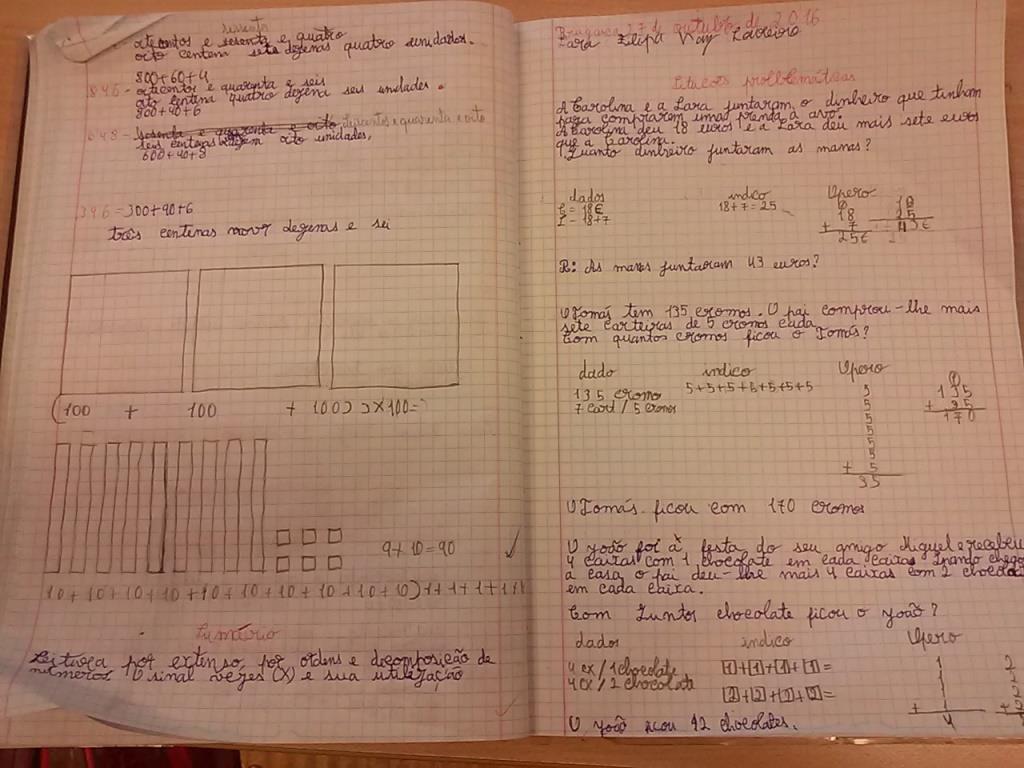 sessenta
oitocentos e sesenta e quatro
oito centem sete dezenas quatro unidades.
800+60+4
846 - oitocentos e quarenta e seis
oito centena quatro dezena seis unidades.
800+40+6
648 - sessenta e quarenta e oito seiscentos e quarenta e oito
seis centenas oito unidades,
600+40+8
396 = 300+90+6
três centenas nove dezenas e sei
(100 + 100 + 100) 3×100=
9×10=90
10+10+10+10+10+10+10+10+10)1+1+1+1+1+1
Sumário
Leitura por extenso, por ordens e decomposição de
números. O sinal vezes (X) e sua utilização
Bragança 27 de outubro de 2016
Lara Filipa Vaz Loureiro
Situacões problemáticas
A Carolina e a Lara juntaram o dinheiro que tinham
para comprarem uma prenda à avó.
A Carolina deu 18 euros e a Lara deu mais sete euros
que a Carolina.
Quanto dinheiro juntaram as manas?
dados indico Opero
C = 18€ 18+7=25 18 18
L - 18+7 + 7 25
25€ 43€
R: As manas juntaram 43 euros?
O Tomás tem 135 cromos. O pai comprou-lhe mais
sete carteiras de 5 cromos cada
Com quantos cromos ficou o Tomás?
dado indico Opero
135 cromo 5+5+5+5+5+5+5 5 135
7 cart / 5 cromos 5 + 35
5 170
5
5
5
+ 5
35
O Tomás ficou com 170 cromos
O João foi à festa do seu amigo Miguel e recebeu
4 caixas com 1 chocolate em cada caixa. Quando chego
a casa o pai deu-lhe mais 4 caixas com 2 chocolat
em cada caixa.
Com Zuntos chocolate ficou o João?
dados indico Opero
4 cx / 1 chocolate 1+1+1+1= 1 2
4 cx / 2 chocolate 1 2
2+2+2+2= 1 2
+ 1 + 2
O João ficou 12 chocolates. 4